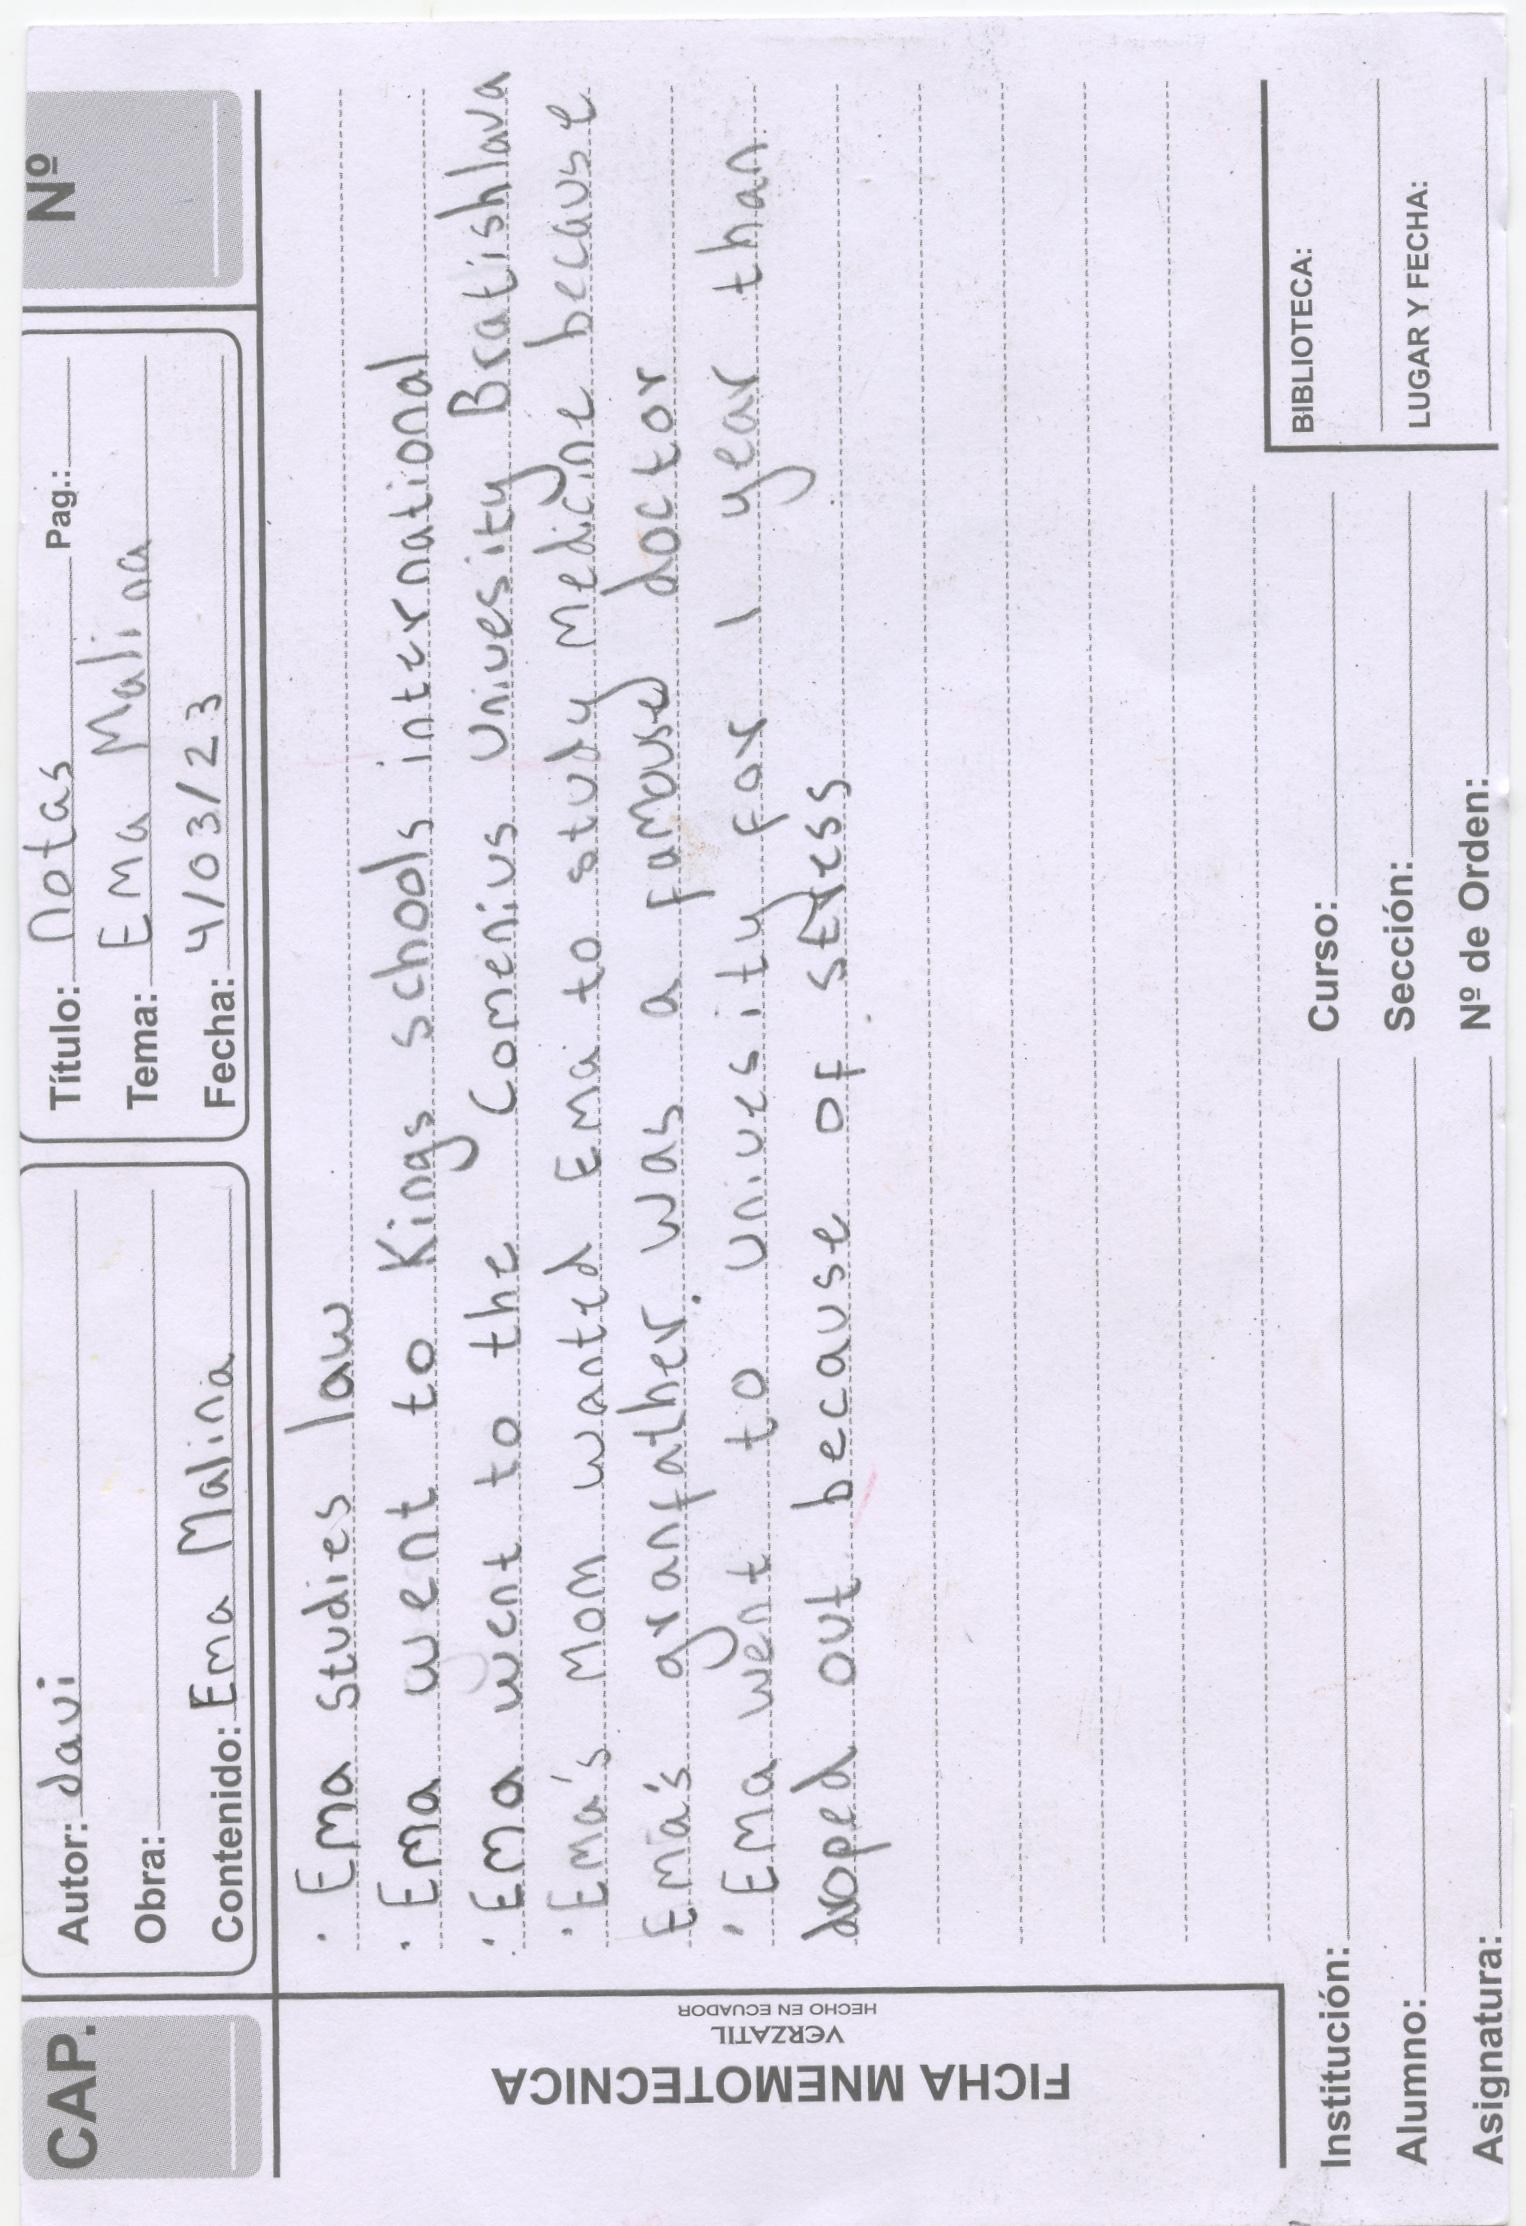 CAP.
Autor: davi
Obra:
Contenido: Ema Malina
Título: notas Pag.:
Tema: Ema Malina
Fecha: 4/03/23
Nº
FICHA MNEMOTECNICA
VERZATIL
HECHO EN ECUADOR
· Ema studies law
· Ema went to Kings schools international
· Ema went to the Comenius Univesity Bratishlava
· Ema's Mom wanted Ema to study Medicine because
Ema's granfather. was a famoused doctor
· Ema went to univesity for 1 year than
droped out because of stress
Institución:
Alumno:
Asignatura:
Curso:
Sección:
Nº de Orden:
BIBLIOTECA:
LUGAR Y FECHA: